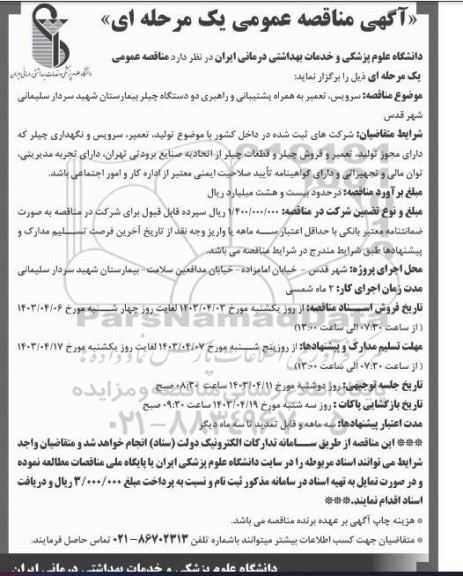 «آگهی مناقصه عمومی یک مرحله ای»
دانشگاه علوم پزشکی و خدمات بهداشتی درمانی ایران
دانشگاه علوم پزشکی و خدمات بهداشتی درمانی ایران در نظر دارد مناقصه عمومی
یک مرحله ای ذیل را برگزار نماید:
موضوع مناقصه: سرویس، تعمیر به همراه پشتیبانی و راهبری دو دستگاه چیلر بیمارستان شهید سردار سلیمانی
شهر قدس
شرایط متقاضیان: شرکت های ثبت شده در داخل کشور با موضوع تولید، تعمیر، سرویس و نگهداری چیلر که
دارای مجوز تولید، تعمیر و فروش چیلر و قطعات چیلر از اتحادیه صنایع برودتی تهران، دارای تجربه مدیریتی،
توان مالی و تجهیزاتی و دارای گواهینامه تأیید صلاحیت ایمنی معتبر از اداره کار و امور اجتماعی باشد.
مبلغ برآورد مناقصه: درحدود بیست و هشت میلیارد ریال
مبلغ و نوع تضمین شرکت در مناقصه: ۱/۴۰۰/۰۰۰/۰۰۰ ریال سپرده قابل قبول برای شرکت در مناقصه به صورت
ضمانتنامه معتبر بانکی با حداقل اعتبار سه ماهه یا واریز وجه نقد از تاریخ آخرین فرصت تسلیم مدارک و
پیشنهادها طبق شرایط مندرج در شرایط مناقصه می باشد.
محل اجرای پروژه: شهر قدس - خیابان امامزاده - خیابان مدافعین سلامت - بیمارستان شهید سردار سلیمانی
مدت زمان اجرای کار: ۲ ماه شمسی
تاریخ فروش اسناد مناقصه: از روز یکشنبه مورخ ۱۴۰۳/۰۴/۰۳ لغایت روز چهار شنبه مورخ ۱۴۰۳/۰۴/۰۶
( از ساعت ۰۷:۳۰ الی ساعت ۱۳:۰۰)
مهلت تسلیم مدارک و پیشنهادها: از روزپنج شنبه مورخ ۱۴۰۳/۰۴/۰۷ لغایت روز یکشنبه مورخ ۱۴۰۳/۰۴/۱۷
( از ساعت ۰۷:۳۰ الی ساعت ۱۳:۰۰)
تاریخ جلسه توجیهی: روز دوشنبه مورخ ۱۴۰۳/۰۴/۱۱ ساعت ۰۸:۳۰ صبح
تاریخ بازگشایی پاکات : روز سه شنبه مورخ ۱۴۰۳/۰۴/۱۹ ساعت ۰۹:۳۰ صبح
مدت اعتبار پیشنهادها: سه ماهه و قابل تمدید تا سه ماه دیگر
*** این مناقصه از طریق سامانه تدارکات الکترونیک دولت (ستاد) انجام خواهد شد و متقاضیان واجد
شرایط می توانند اسناد مربوطه را در سایت دانشگاه علوم پزشکی ایران یا پایگاه ملی مناقصات مطالعه نموده
و در صورت تمایل به تهیه اسناد در سامانه مذکور ثبت نام و نسبت به پرداخت مبلغ ۳/۰۰۰/۰۰۰ ریال و دریافت
اسناد اقدام نمایند.***
* هزینه چاپ آگهی بر عهده برنده مناقصه می باشد.
* متقاضیان جهت کسب اطلاعات بیشتر میتوانند باشماره تلفن ۸۶۷۰۲۳۱۳-۰۲۱ تماس حاصل فرمایند.
دانشگاه علوم پزشکی و خدمات بهداشتی درمانی ایران
ParsNamadData
۰۲۱-۸۸۳۴۹۶۷۰